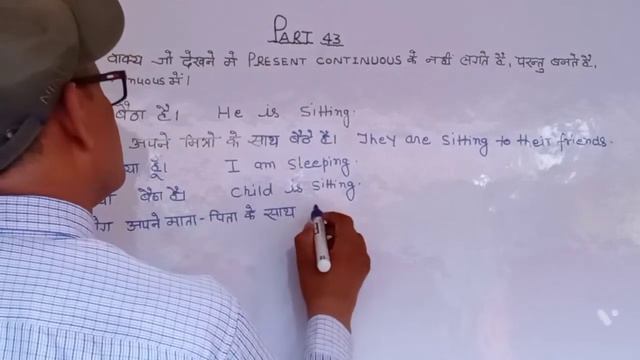 PART 43
वाक्य जो देखने में PRESENT CONTINUOUS के नहीं लगते हैं, परन्तु बनते हैं,
में।
बैठा है। He is sitting.
अपने मित्रो के साथ बैठे हैं। They are sitting to their friends.
हूँ। I am sleeping.
बैठा है। Child is sitting.
अपने माता-पिता के साथ